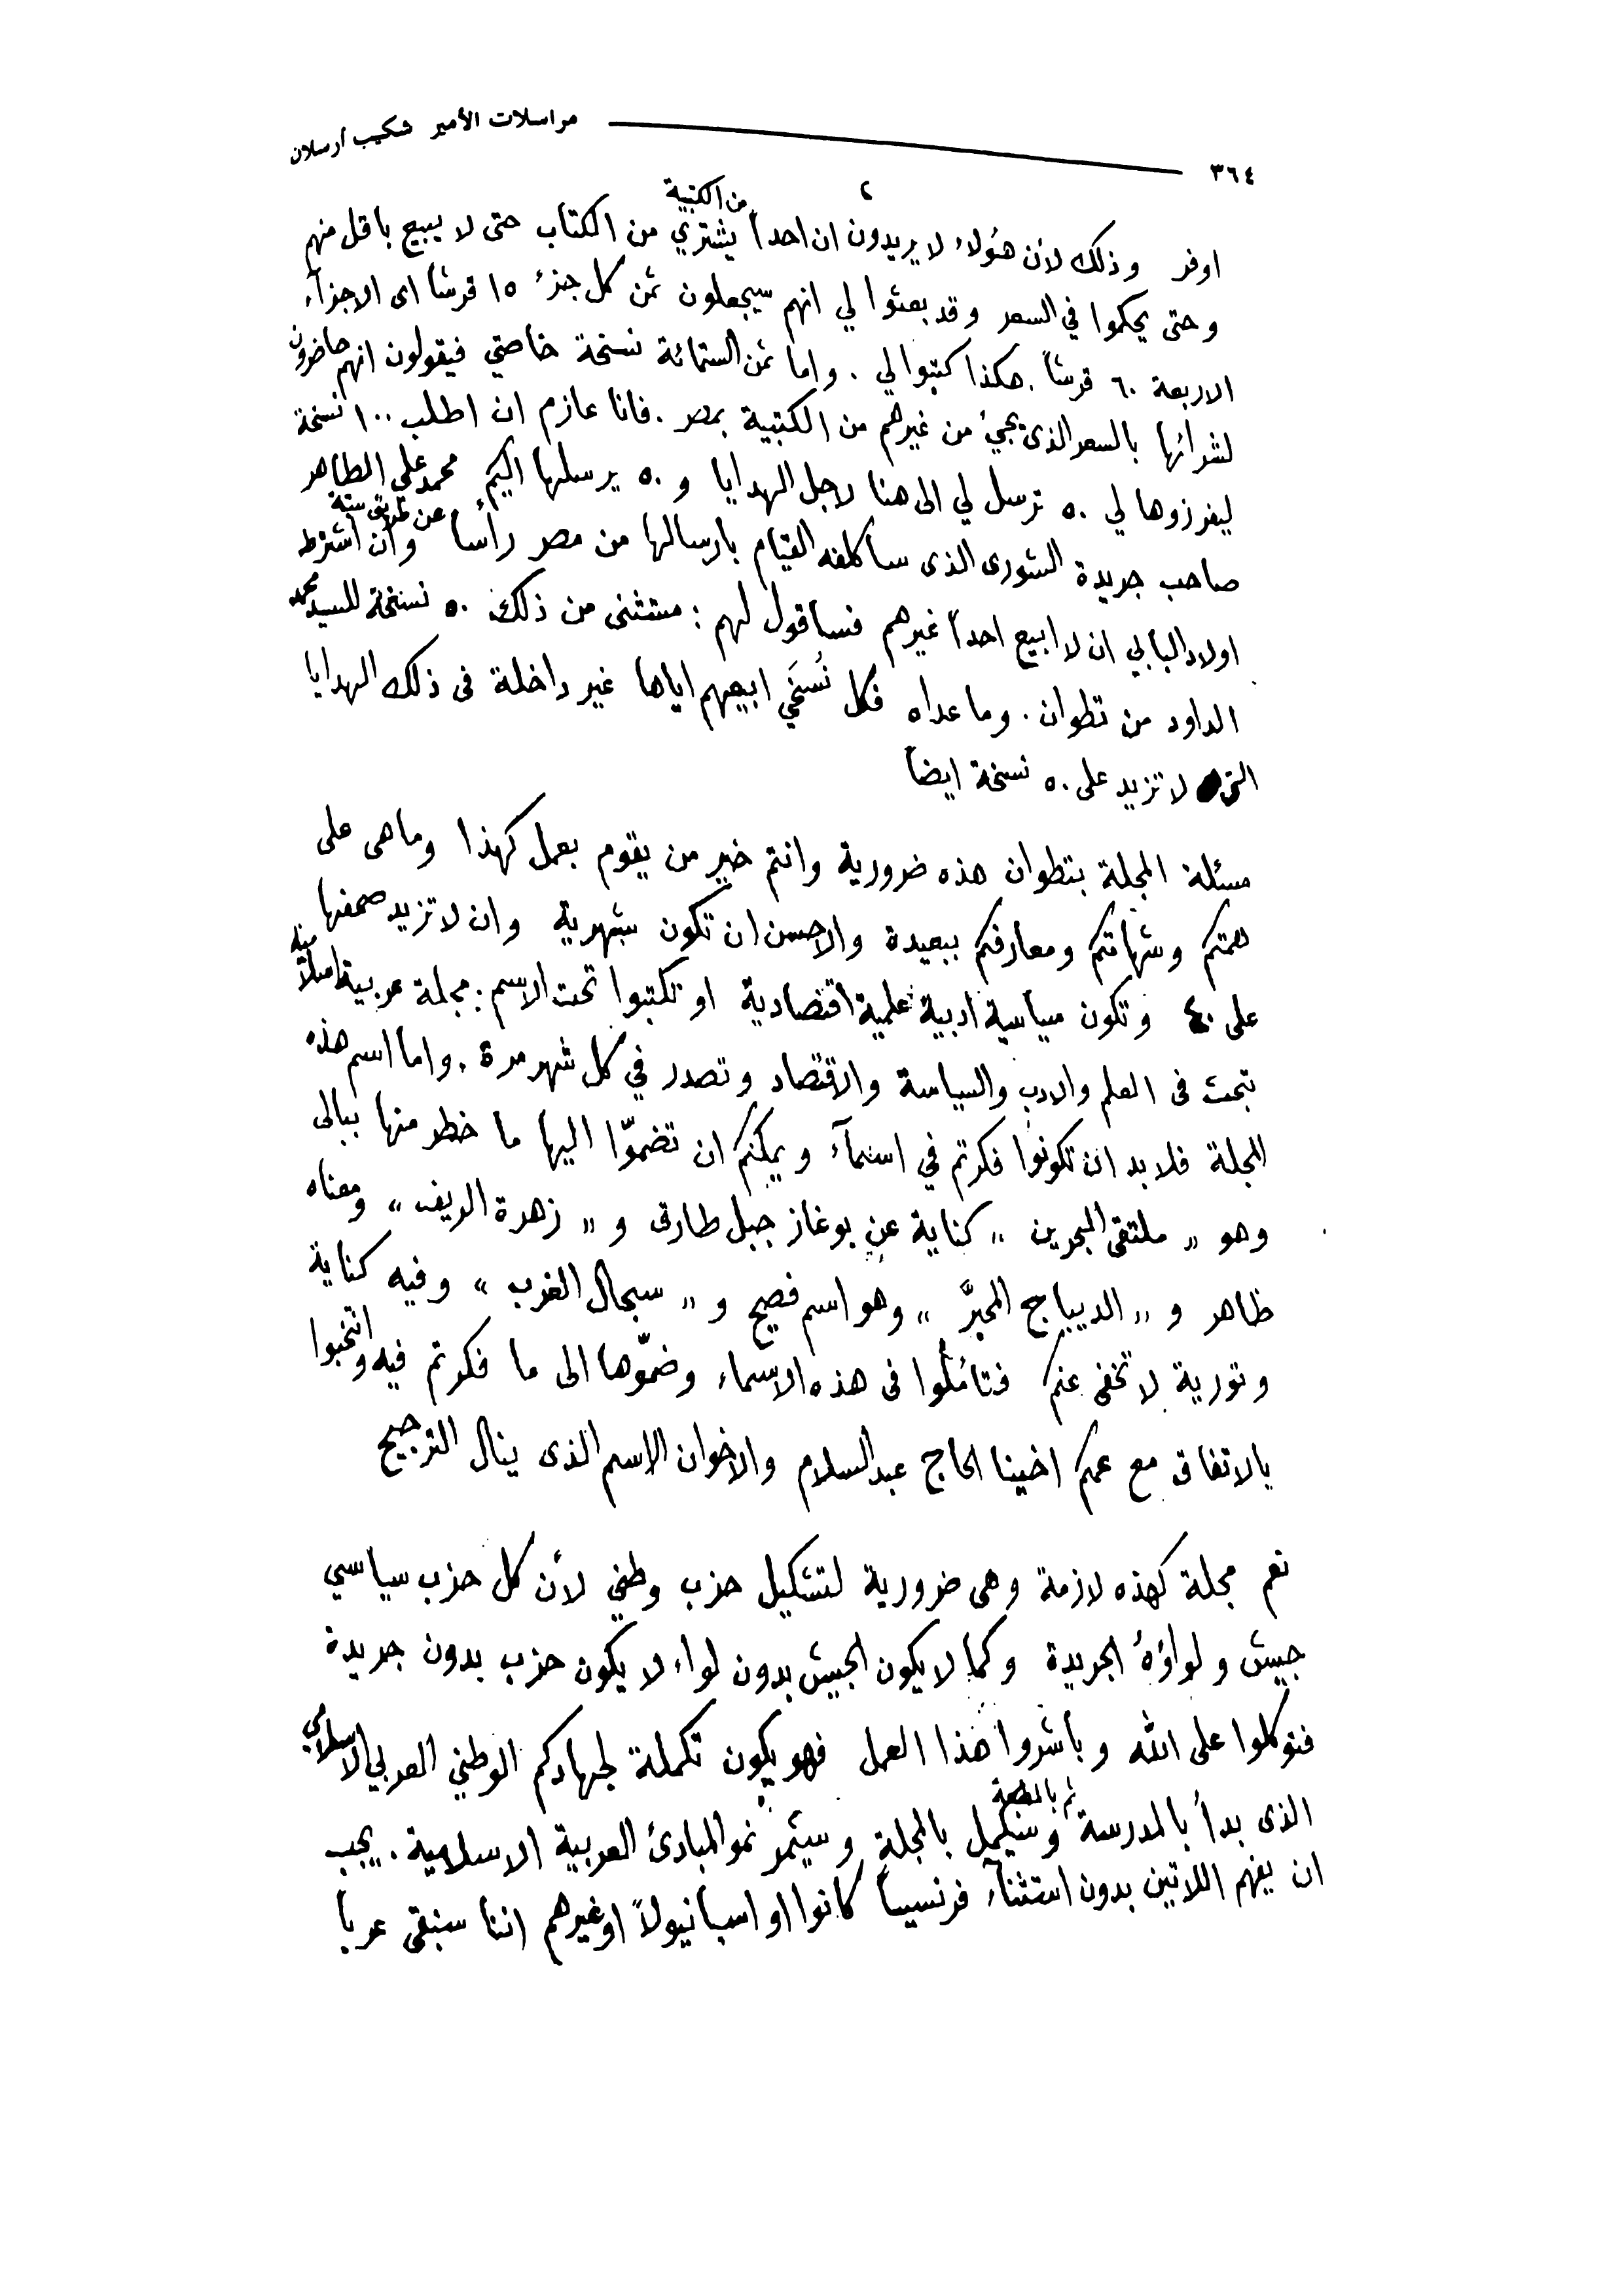 ٣٦٤ مراسلات الأمير شكيب أرسلان
٢
اوفر وذلك لأن هؤلاء لا يريدون ان احداً من الكتبية يشتري من الكتاب حتى لا يبيع باقل منهم
وحتى يحكموا في السعر وقد بعثوا لي انهم سيجعلون ثمن كل جزء ١٥ قرشا اى الاجزآء
الاربعة ٦٠ قرشاً . هكذا كتبوا لي . واما ثمن الستمائة نسخة خاصتي فيقولون انهم حاضرون
لشرائها بالسعر الذى يجيء من غيرهم من الكتبية بمصر . فانا عازم ان اطلب ١٠٠ نسخة
ليفرزوها لي ٥٠ ترسل لي الى هنا لاجل الهدايا و ٥٠ يرسلها اليكم محمد على الطاهر
صاحب جريدة الشورى الذى ساكلفه القيام بارسالها من مصر رأساً عن طريق سبتة وان اشترط
اولاد البابي ان لا ابيع احداً غيرهم فساقول لهم : مستثنى من ذلك ٥٠ نسخة للسيد محمد
الداود من تطوان . وما عداه فكل نُسَخي ابيعهم اياها غير داخلة فى ذلك الهدايا
التى لا تزيد على ٥٠ نسخة ايضاً
مسئلة المجلة بتطوان هذه ضرورية وانتم خير من يقوم بعمل كهذا وما هى على
همتكم وشهامتكم ومعارفكم ببعيدة والاحسن ان تكون شهرية وان لا تزيد صحفها
على ٤٠ وتكون سياسية ادبية علمية اقتصادية او تكتبوا تحت الاسم : مجلة عربية اسلامية
تبحث فى العلم والادب والسياسة والاقتصاد وتصدر في كل شهر مرة . واما اسم هذه
المجلة فلا بد ان تكونوا فكرتم في اسمآء ويمكنكم ان تضمّوا اليها ما خطر منها ببالى
وهو « ملتقى البحرين » كناية عن بوغاز جبل طارق و « زهرة الريف » ومعناه
ظاهر و « الديباج المحبَّر » وهو اسم فصيح و « سجال الغرب » وفيه كناية
وتورية لا تخفى عنكم فتامّلوا فى هذه الاسماء وضمّوها الى ما فكرتم فيه وانتخبوا
بالاتفاق مع عمكم اخينا الحاج عبد السلام والاخوان الاسم الذى ينال الترجيح
نعم مجلة كهذه لازمة وهى ضرورية لتشكيل حزب وطني لأن كل حزب سياسي
جيش ولواؤهُ الجريدة وكما لا يكون الجيش بدون لواء لا يكون حزب بدون جريدة
فتوكلوا على الله وباشروا هذا العمل فهو يكون تكملة لجهادكم الوطني العربي الاسلامي
الذى بدأ بالمدرسة ثم بالمطبعة وسيكمل بالمجلة وسيثمر نمو المبادئ العربية الاسلامية . يجب
ان يفهم اللاتين بدون استثنآء فرنسيساً كانوا او اسبانيولاً او غيرهم اننا سنبقى عرباً